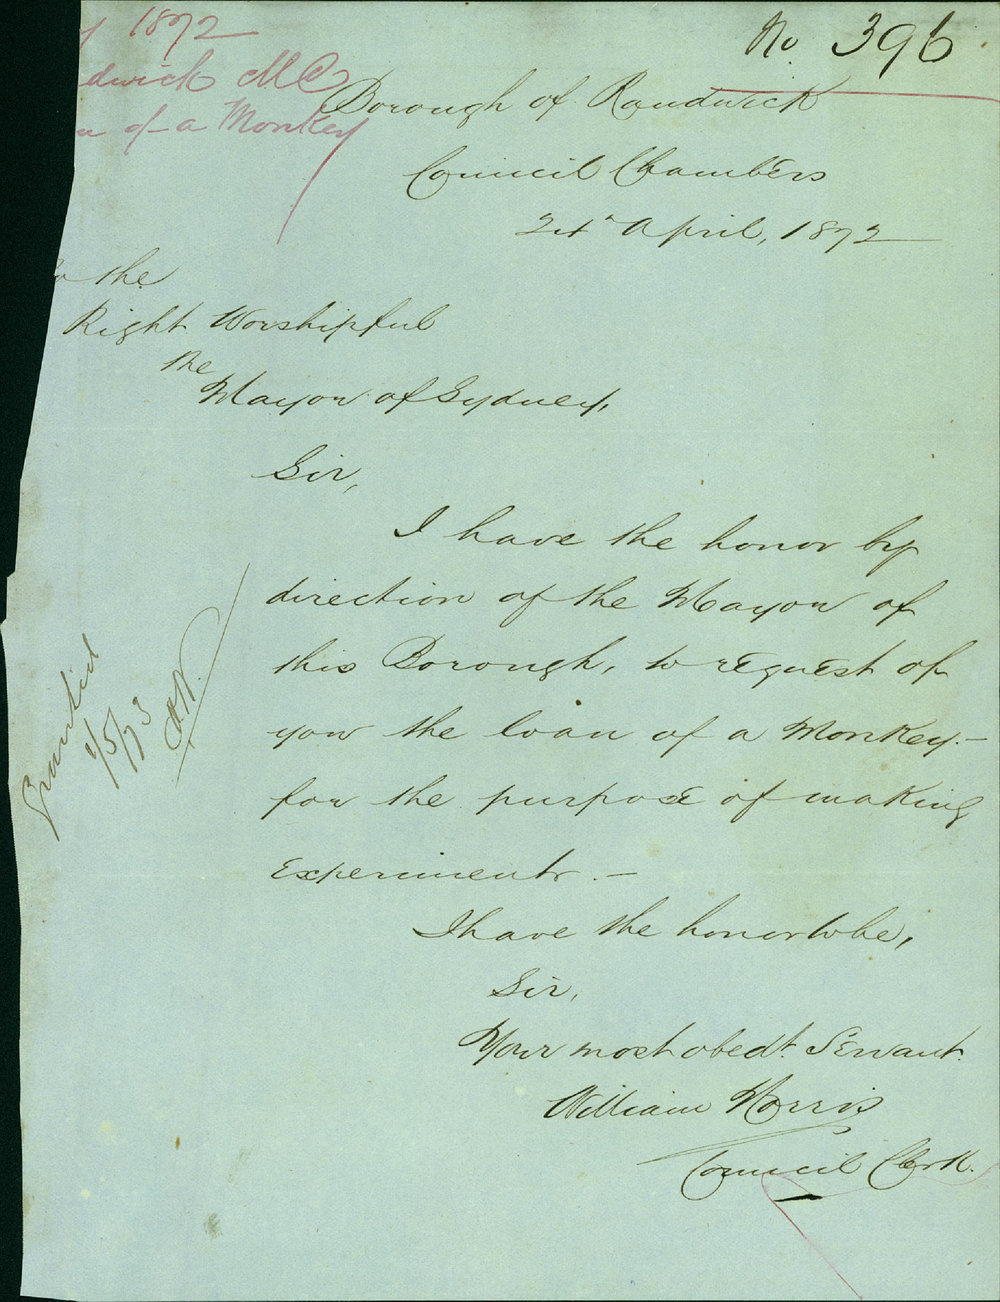 1872
No. 396
dwick MC
of a Monkey
Borough of Randwick
Council Chambers
24th April, 1872
the
Right Worshipful
the
Mayor of Sydney,
Sir,
I have the honor by
direction of the Mayor of
this Borough, to request of
you the loan of a Monkey.—
for the purpose of making
Experiments.—
I have the honor to be,
Sir,
Your most obedt. Servant.
William Norris
Council Clerk.
Granted
1/5/73